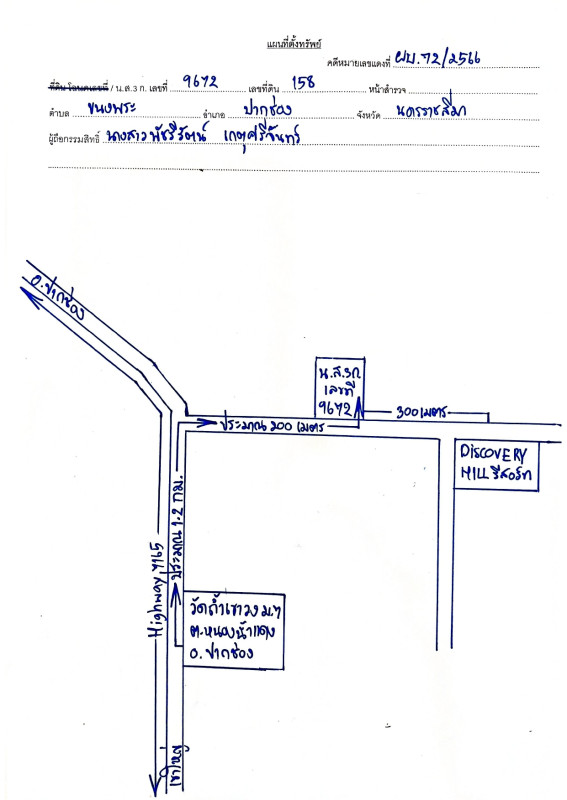 แผนที่ตั้งทรัพย์
คดีหมายเลขแดงที่ ผบ.72/2566
ที่ดิน โฉนดเลขที่ / น.ส.3 ก. เลขที่ 9672 เลขที่ดิน 158 หน้าสำรวจ
ตำบล ขนงพระ อำเภอ ปากช่อง จังหวัด นครราชสีมา
ผู้ถือกรรมสิทธิ์ นางสาวพัชรีรัตน์ เกตุศรีจันทร์
อ.ปากช่อง
น.ส.3ก
เลขที่
9672
300 เมตร
ประมาณ 200 เมตร
DISCOVERY
HILL รีสอร์ท
ประมาณ 1.2 กม.
Highway 7165
วัดถ้ำเขาวง ม.7
ต.หนองน้ำแดง
อ.ปากช่อง
เขาใหญ่